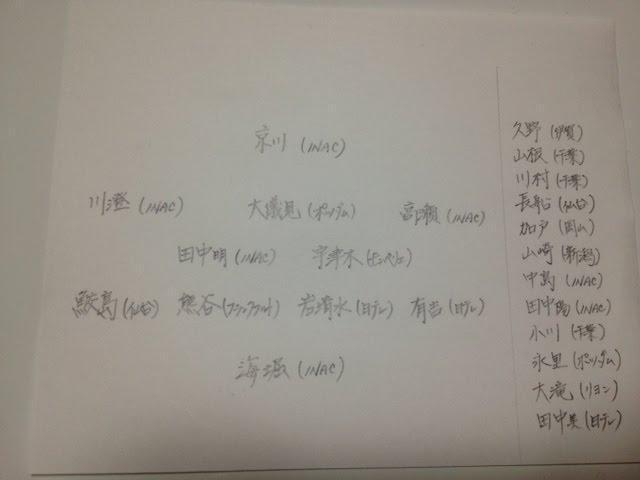 京川 (INAC)
川澄 (INAC) 大儀見 (ポツダム) 宮間 (INAC)
田中明 (INAC) 宇津木 (モンペリエ)
鮫島 (仙台) 熊谷 (フランクフルト) 岩清水 (日テレ) 有吉 (日テレ)
海堀 (INAC)
久野 (伊賀)
山根 (千葉)
川村 (千葉)
長船 (仙台)
加戸 (岡山)
山崎 (新潟)
中島 (INAC)
田中陽 (INAC)
小川 (千葉)
永里 (ポツダム)
大滝 (リヨン)
田中美 (日テレ)